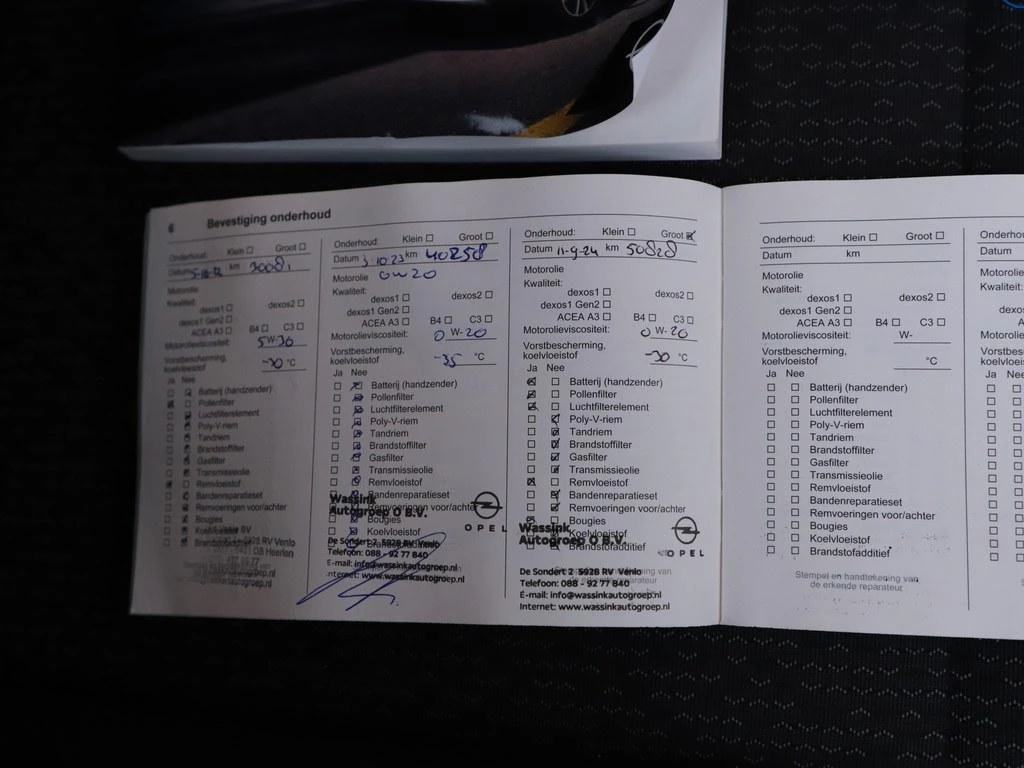 6 Bevestiging onderhoud
Onderhoud: Klein ☐ Groot ☐
Datum km
Motorolie
Kwaliteit:
dexos1 ☐ dexos2 ☐
dexos1 Gen2 ☐
ACEA A3 ☐ B4 ☐ C3 ☐
Motorolieviscositeit:
5W-30
Vorstbescherming,
koelvloeistof -30 °C
Ja Nee
Batterij (handzender)
Pollenfilter
Luchtfilterelement
Poly-V-riem
Tandriem
Brandstoffilter
Gasfilter
Transmissieolie
Remvloeistof
Bandenreparatieset
Remvoeringen voor/achter
Bougies
Onderhoud: Klein ☐ Groot ☐
Datum 3 10-23 km 40258
Motorolie 0W20
Kwaliteit:
dexos1 ☐ dexos2 ☐
dexos1 Gen2 ☐
ACEA A3 ☐ B4 ☐ C3 ☐
Motorolieviscositeit: 0 W-20
Vorstbescherming,
koelvloeistof -35 °C
Ja Nee
Batterij (handzender)
Pollenfilter
Luchtfilterelement
Poly-V-riem
Tandriem
Brandstoffilter
Gasfilter
Transmissieolie
Remvloeistof
Bandenreparatieset
Remvoeringen voor/achter
Bougies
Koelvloeistof
Wassink
Autogroep O B.V.
OPEL
De Sondert 2 5928 RV Venlo
Telefoon: 088 - 92 77 840
E-mail: info@wassinkautogroep.nl
Internet: www.wassinkautogroep.nl
Onderhoud: Klein ☐ Groot ☒
Datum 11-9-24 km 50828
Motorolie
Kwaliteit:
dexos1 ☐ dexos2 ☐
dexos1 Gen2 ☐
ACEA A3 ☐ B4 ☐ C3 ☐
Motorolieviscositeit: 0 W-20
Vorstbescherming,
koelvloeistof -30 °C
Ja Nee
Batterij (handzender)
Pollenfilter
Luchtfilterelement
Poly-V-riem
Tandriem
Brandstoffilter
Gasfilter
Transmissieolie
Remvloeistof
Bandenreparatieset
Remvoeringen voor/achter
Bougies
Koelvloeistof
Brandstofadditief
Wassink
Autogroep O B.V.
OPEL
De Sondert 2 5928 RV Venlo
Telefoon: 088 - 92 77 840
E-mail: info@wassinkautogroep.nl
Internet: www.wassinkautogroep.nl
Onderhoud: Klein ☐ Groot ☐
Datum km
Motorolie
Kwaliteit:
dexos1 ☐ dexos2 ☐
dexos1 Gen2 ☐
ACEA A3 ☐ B4 ☐ C3 ☐
Motorolieviscositeit: W-
Vorstbescherming,
koelvloeistof °C
Ja Nee
☐ ☐ Batterij (handzender)
☐ ☐ Pollenfilter
☐ ☐ Luchtfilterelement
☐ ☐ Poly-V-riem
☐ ☐ Tandriem
☐ ☐ Brandstoffilter
☐ ☐ Gasfilter
☐ ☐ Transmissieolie
☐ ☐ Remvloeistof
☐ ☐ Bandenreparatieset
☐ ☐ Remvoeringen voor/achter
☐ ☐ Bougies
☐ ☐ Koelvloeistof
☐ ☐ Brandstofadditief
Stempel en handtekening van
de erkende reparateur
Datum
Ja